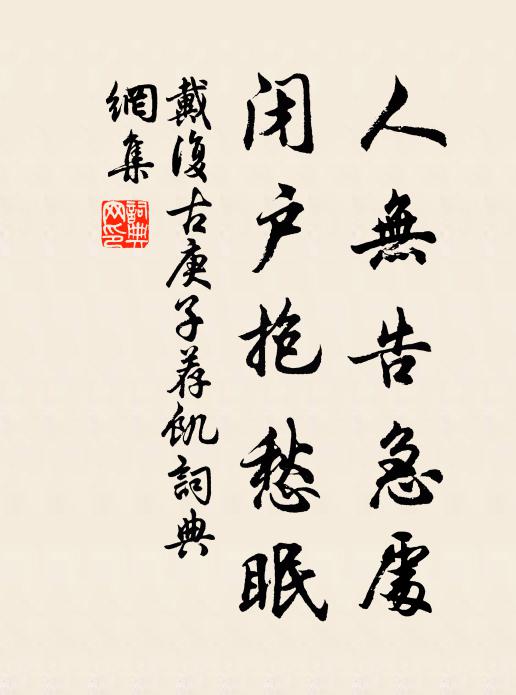 人無告急處
闭户抱愁眠
戴復古庚子荐飢詞典
網集
詞典
网印